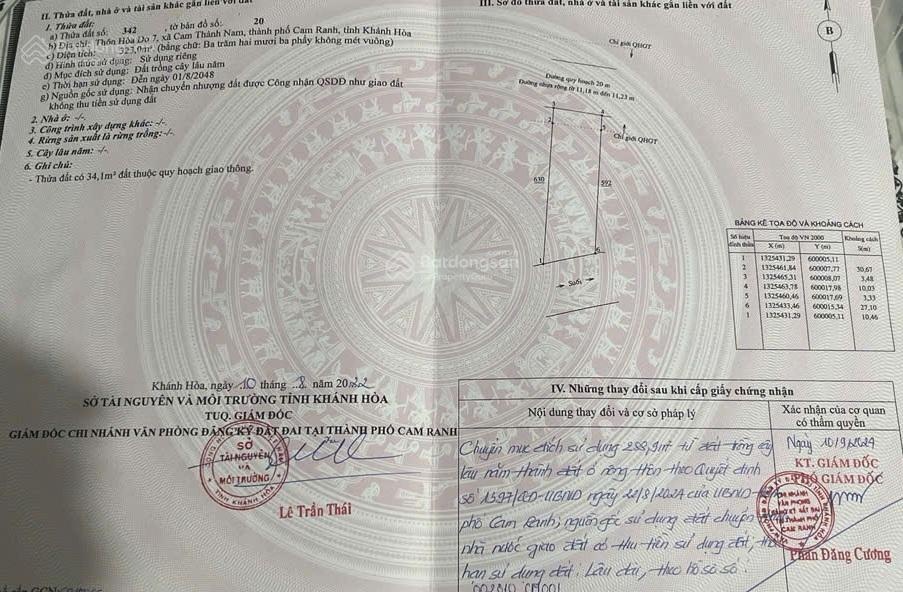 II. Thửa đất, nhà ở và tài sản khác gắn liền với đất
1. Thửa đất:
a) Thửa đất số: 342 , tờ bản đồ số: 20
b) Địa chỉ: Thôn Hòa Do 7, xã Cam Thành Nam, thành phố Cam Ranh, tỉnh Khánh Hòa
c) Diện tích: 323,0m² (bằng chữ: Ba trăm hai mươi ba phẩy không mét vuông)
d) Hình thức sử dụng: Sử dụng riêng
đ) Mục đích sử dụng: Đất trồng cây lâu năm
e) Thời hạn sử dụng: Đến ngày 01/8/2048
g) Nguồn gốc sử dụng: Nhận chuyển nhượng đất được Công nhận QSDĐ như giao đất
không thu tiền sử dụng đất
2. Nhà ở: -/-
3. Công trình xây dựng khác: -/-
4. Rừng sản xuất là rừng trồng: -/-
5. Cây lâu năm: -/-
6. Ghi chú:
- Thửa đất có 34,1m² đất thuộc quy hoạch giao thông.
Khánh Hòa, ngày 10 tháng 8 năm 2022
SỞ TÀI NGUYÊN VÀ MÔI TRƯỜNG TỈNH KHÁNH HÒA
TUQ. GIÁM ĐỐC
GIÁM ĐỐC CHI NHÁNH VĂN PHÒNG ĐĂNG KÝ ĐẤT ĐAI TẠI THÀNH PHỐ CAM RANH
SỞ
TÀI NGUYÊN
VÀ
MÔI TRƯỜNG
TỈNH KHÁNH HÒA
Lê Trần Thái
III. Sơ đồ thửa đất, nhà ở và tài sản khác gắn liền với đất
B
Chỉ giới QHGT
Đường quy hoạch 20 m
Đường nhựa rộng từ 11,18 m đến 11,23 m
3 4
2 5
Chỉ giới QHGT
630 592
1 6
Suối
Batdongsan
BẢNG KÊ TỌA ĐỘ VÀ KHOẢNG CÁCH
Số hiệu đỉnh thửa Tọa độ VN 2000 Khoảng cách
X (m) Y (m) S(m)
1 1325431,29 600005,11
2 1325461,84 600007,77 30,67
3 1325465,31 600008,07 3,48
4 1325463,78 600017,98 10,03
5 1325460,46 600017,69 3,33
6 1325433,46 600015,34 27,10
1 1325431,29 600005,11 10,46
IV. Những thay đổi sau khi cấp giấy chứng nhận
Nội dung thay đổi và cơ sở pháp lý
Xác nhận của cơ quan
có thẩm quyền
Chuyển mục đích sử dụng 288,9m² từ đất trồng cây
lâu năm thành đất ở nông thôn theo Quyết định
số 1597/QĐ-UBND ngày 22/8/2024 của UBND
phố Cam Ranh; nguồn gốc sử dụng đất chuyển
nhà nước giao đất có thu tiền sử dụng đất,
hạn sử dụng đất: Lâu dài, theo hồ sơ số:
002810.CM001
Ngày 10/9/2024
KT. GIÁM ĐỐC
PHÓ GIÁM ĐỐC
CHI NHÁNH
VĂN PHÒNG
ĐĂNG KÝ ĐẤT ĐAI
TẠI THÀNH PHỐ
CAM RANH
Phan Đăng Cương